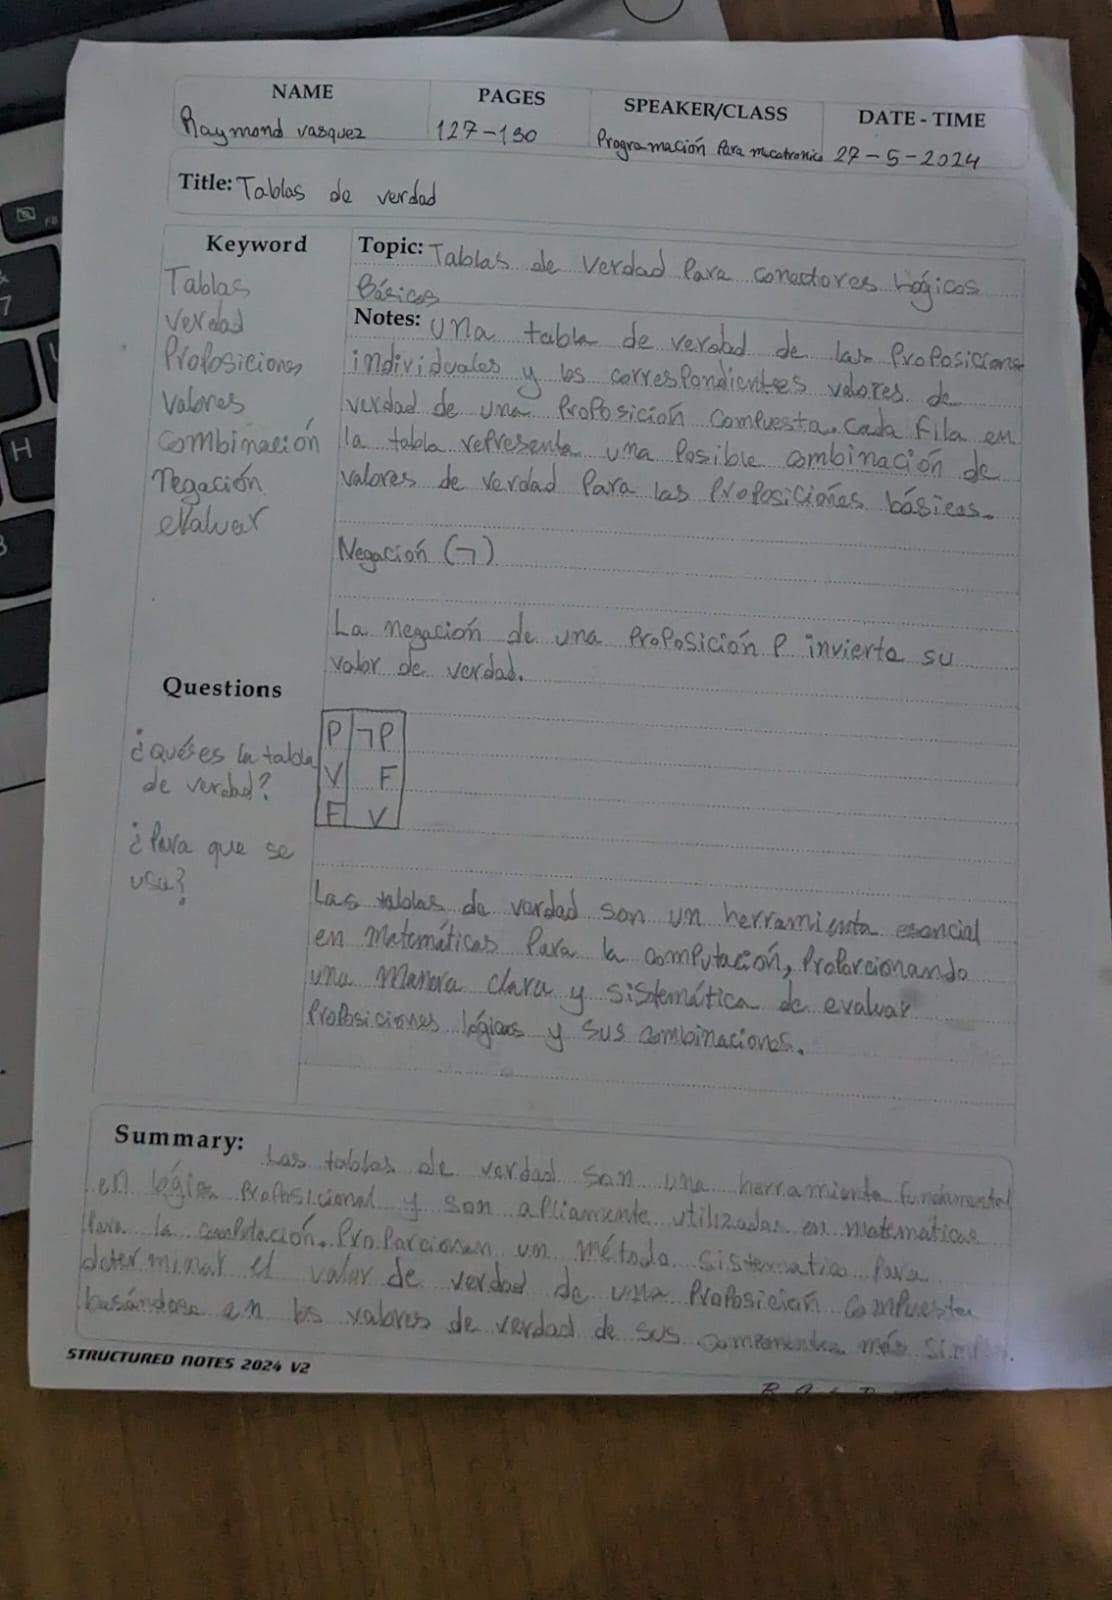 NAME PAGES SPEAKER/CLASS DATE - TIME
Raymond vasquez 127-130 Programación Para mecatronica 27-5-2024
Title: Tablas de verdad
Keyword
Tablas
verdad
Proposiciones
valores
combinación
negación
evaluar
Topic: Tablas de verdad Para conectores Lógicos
Básicos
Notes: una tabla de verdad de las Proposicions
individuales y los correspondientes valores de
verdad de una Proposición compuesta. Cada fila en
la tabla representa una Posible combinación de
valores de verdad Para las Proposiciones básicas.
Negación (¬)
La negación de una Proposición P invierte su
valor de verdad.
Questions
¿qué es la tabla
de verdad?
¿Para que se
usa?
P ¬P
V F
F V
Las tablas de verdad son un herramienta esencial
en matemáticas Para la computación, Proporcionando
una manera clara y sistemática de evaluar
Proposiciones lógicas y sus combinaciones.
Summary: Las tablas de verdad son una herramienta fundamental
en lógica Proposicional y son apliamente utilizadas en matemáticas
Para la computación. Proporcionan un método sistematico Para
determinar el valor de verdad de una Proposición compuesta
basándose en los valores de verdad de sus componentes más
STRUCTURED NOTES 2024 V2